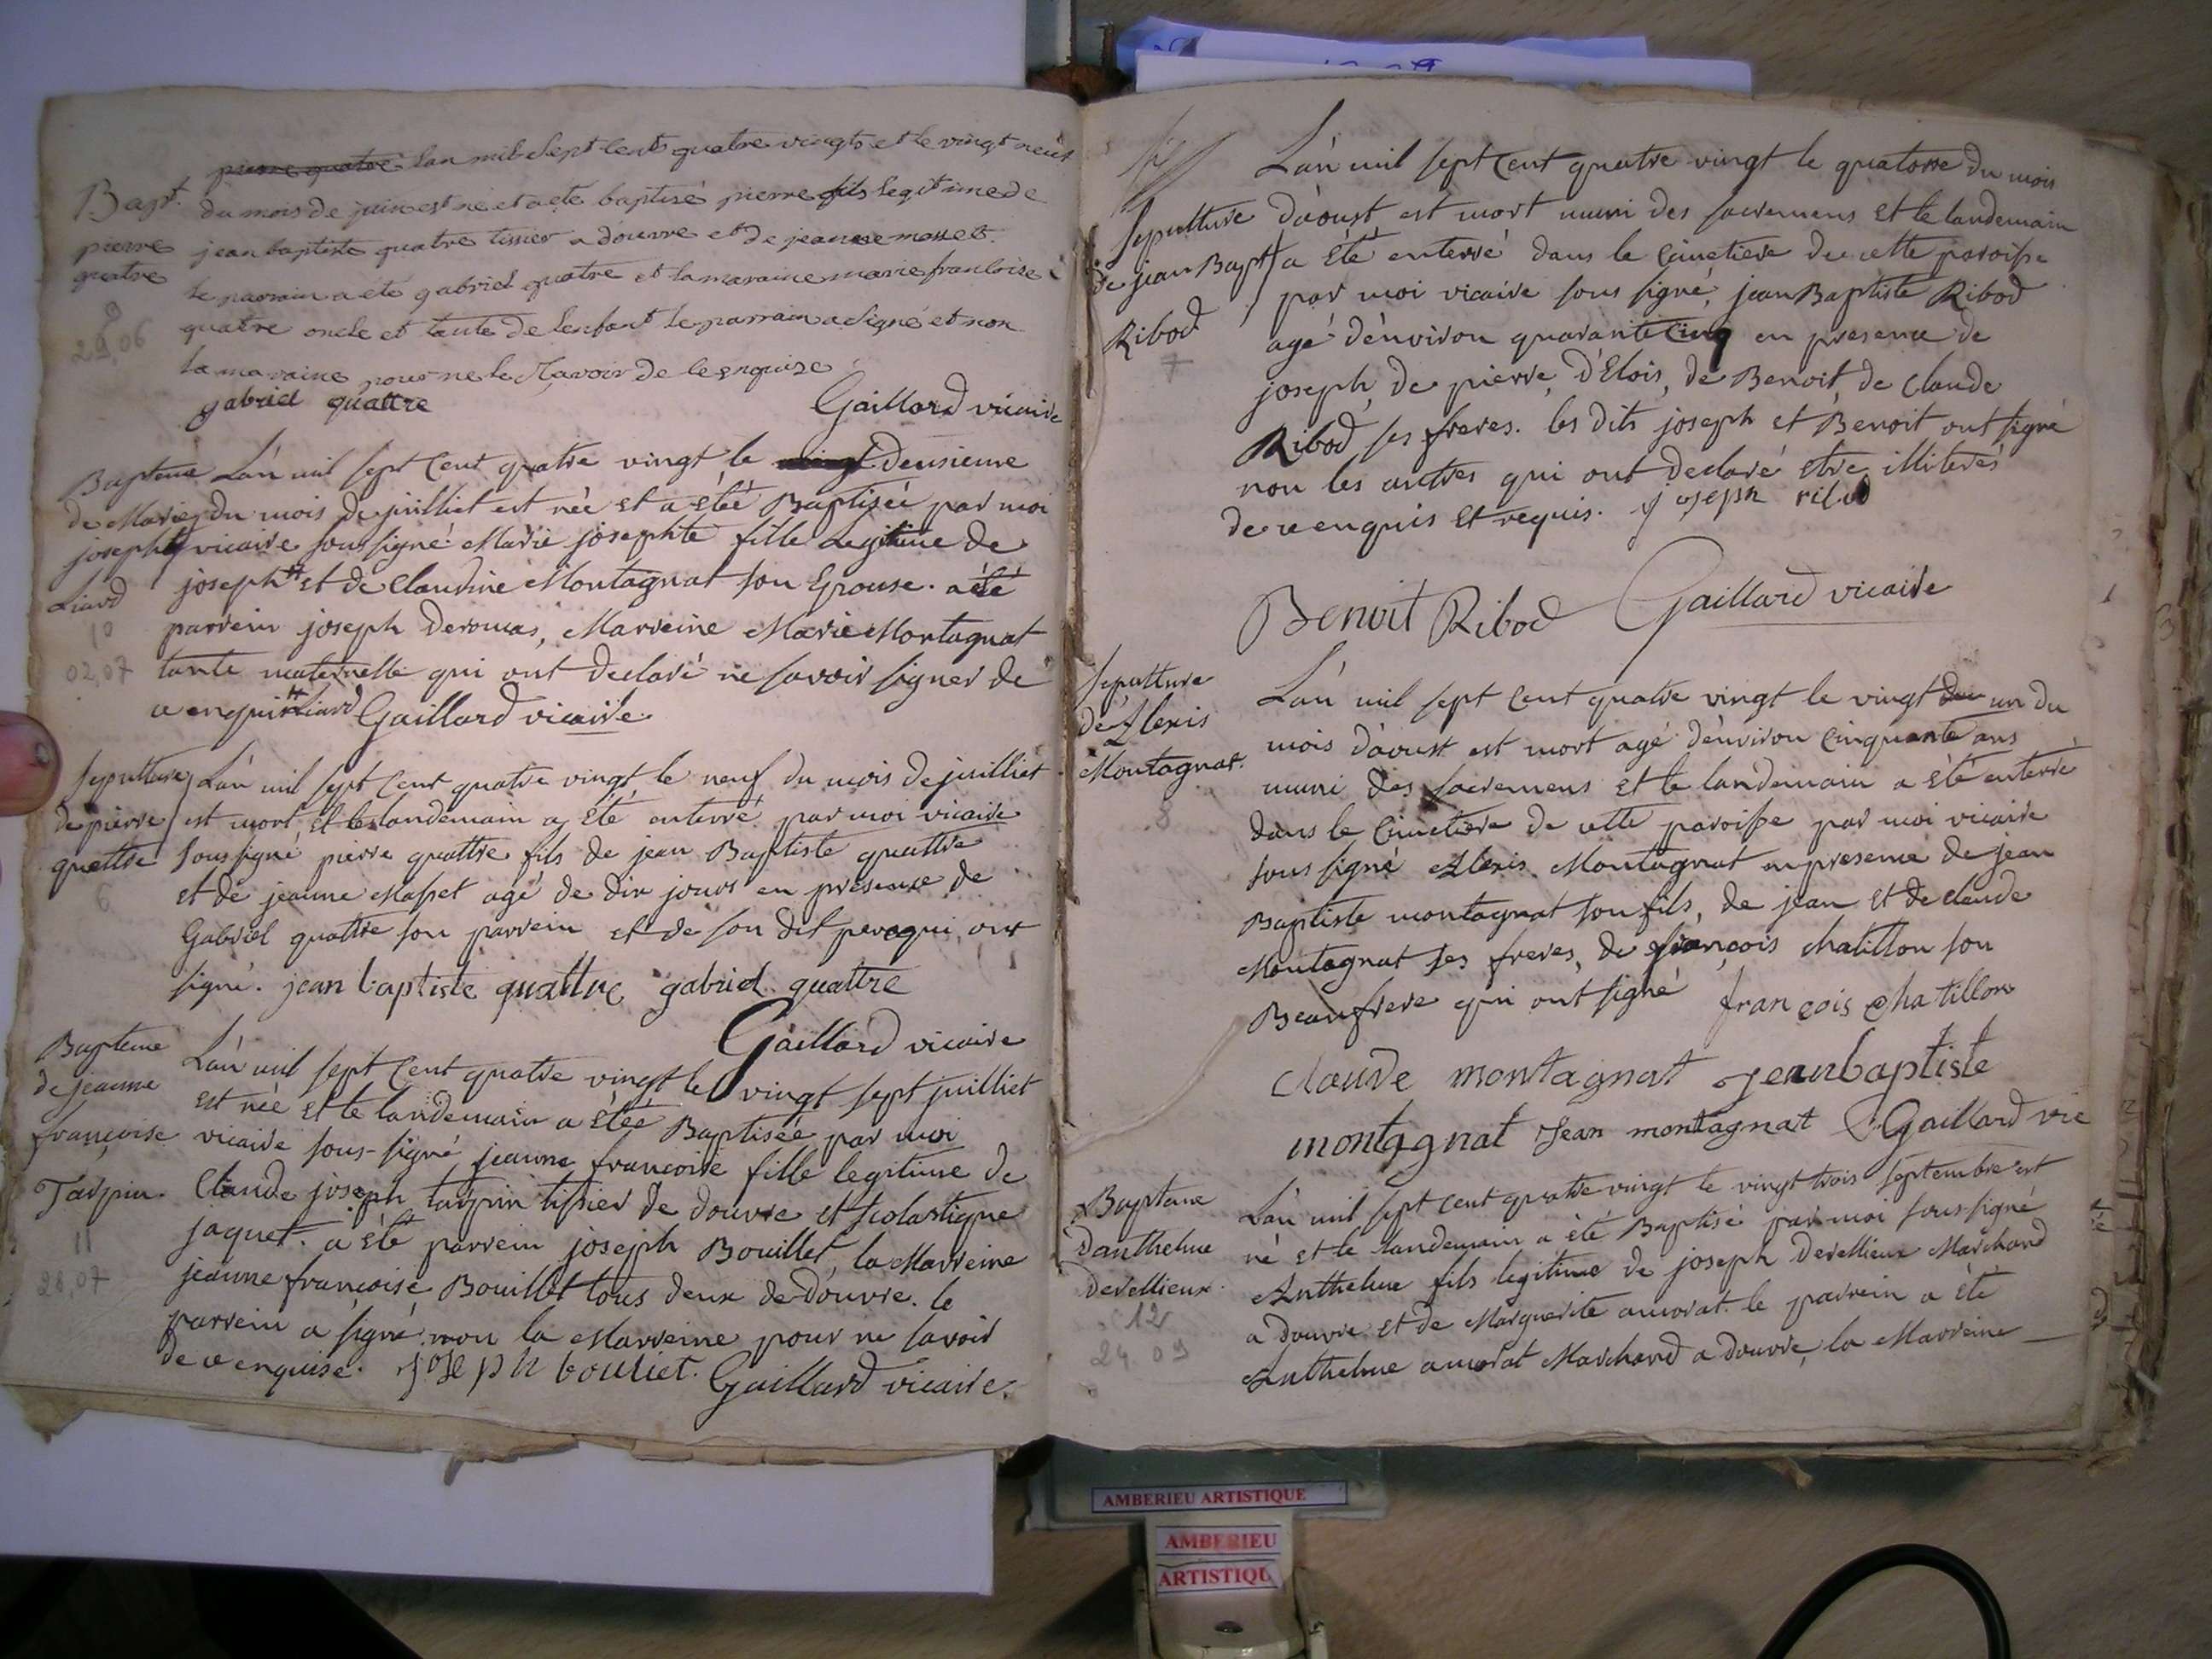 pierre quatre lan mil sept cent quatre vingts et le vingt neuf
Bapt. du mois de juin est né et a eté baptisé pierre fils legitime de
pierre jean baptiste quatre tissier a douvre et de jeanne masset.
quatre le parrain a eté gabriel quatre et la maraine marie francoise
9
29,06
quatre oncle et tante de lenfant le parrain a signé et non
la maraine pour ne le sçavoir de ce enquise
gabriel quattre Gaillard vicaire
Bapteme L'an mil sept cent quatre vingt le vingt deusieme
de Marie du mois de juilliet est née et a étéé Baptisée par moi
josephte vicaire sous signé Marie josephte fille Legitime de
Liard joseph # et de Claudine Montagnat son Epouse. a été
10
parrein joseph deromas, Marreine Marie Montagnat
02,07 tante maternelle qui ont declaré ne savoir signer de
ce enquis # Liard Gaillard vicaire
Sepulture L'an mil sept cent quatre vingt le neuf du mois de juilliet
de pierre est mort, et le landemain a été enterré par moi vicaire
quattre sous signé pierre quattre fils de jean Baptiste quattre
6
et de jeanne Masset agé de dix jours en présence de
Gabriel quattre son parrein et de son dit pere qui ont
signé. jean baptiste quattre gabriel quattre
Gaillard vicaire
Bapteme L'an mil sept cent quatre vingt le vingt sept juilliet
de jeanne est née et le landemain a étéé Baptisée par moi
françoise vicaire sous-signé jeanne francoise fille legitime de
Tarpin. Claude joseph tarpin tissier de douvre et scolastique
11
jaquet. a été parrein joseph Bouillet, la Marreine
28,07 jeanne francoise Bouillet tous deux de Douvre. le
parrein a signé non la Marreine pour ne savoir
de ce enquise. joseph bouliet. Gaillard vicaire.
L'an mil sept cent quatre vingt le quatorse du mois
Sepulture d'aoust est mort muni des sacremens et le landemain
de jean Bapt a été enterré dans le Cimetiere de cette paroisse
Ribod par moi vicaire sous signé, jean Baptiste Ribod
7
agé d'environ quarante cinq en presence de
joseph, de pierre, d'Elois, de Benoit, de Claude
Ribod ses freres. les dits joseph et Benoit ont signé
non les autres qui ont declaré etre illiterés
de ce enquis et requis. joseph ribod
Benoit Ribod Gaillard vicaire
Sepulture L'an mil sept cent quatre vingt le vingt un du
de Alexis mois d'aoust est mort agé d'environ cinquante ans
Montagnat. muni des sacremens et le landemain a été enterré
8
dans le Cimetiere de cette paroisse par moi vicaire
sous signé Alexis Montagnat en presence de jean
Baptiste montagnat son fils, de jean et de claude
Montagnat ses freres, de françois chatillon son
Beaufrere qui ont signé françois chatillon
claude montagnat jeanbaptiste
montagnat Jean montagnat Gaillard vic
Bapteme L'an mil sept cent quatre vingt le vingt trois septembre est
d'anthelme né et le landemain a été Baptisé par moi sous signé
devellieux. Anthelme fils legitime de joseph devellieux Marchand
12
a douvre et de Marguerite amorat. le parrein a été
24.09
Anthelme amorat Marchand a douvre, la Marreine
AMBERIEU ARTISTIQUE
AMBERIEU
ARTISTIQU